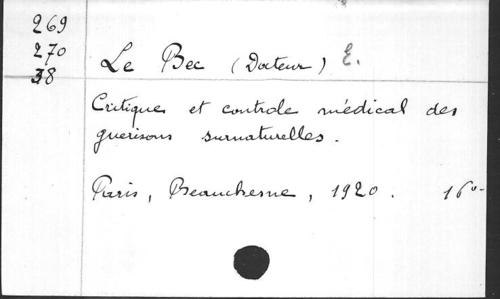 269
270
38
Le Bec (Docteur) E.
Critique et controle médical des
guerisons surnaturelles.
Paris, Beauchesne, 1920. 16°